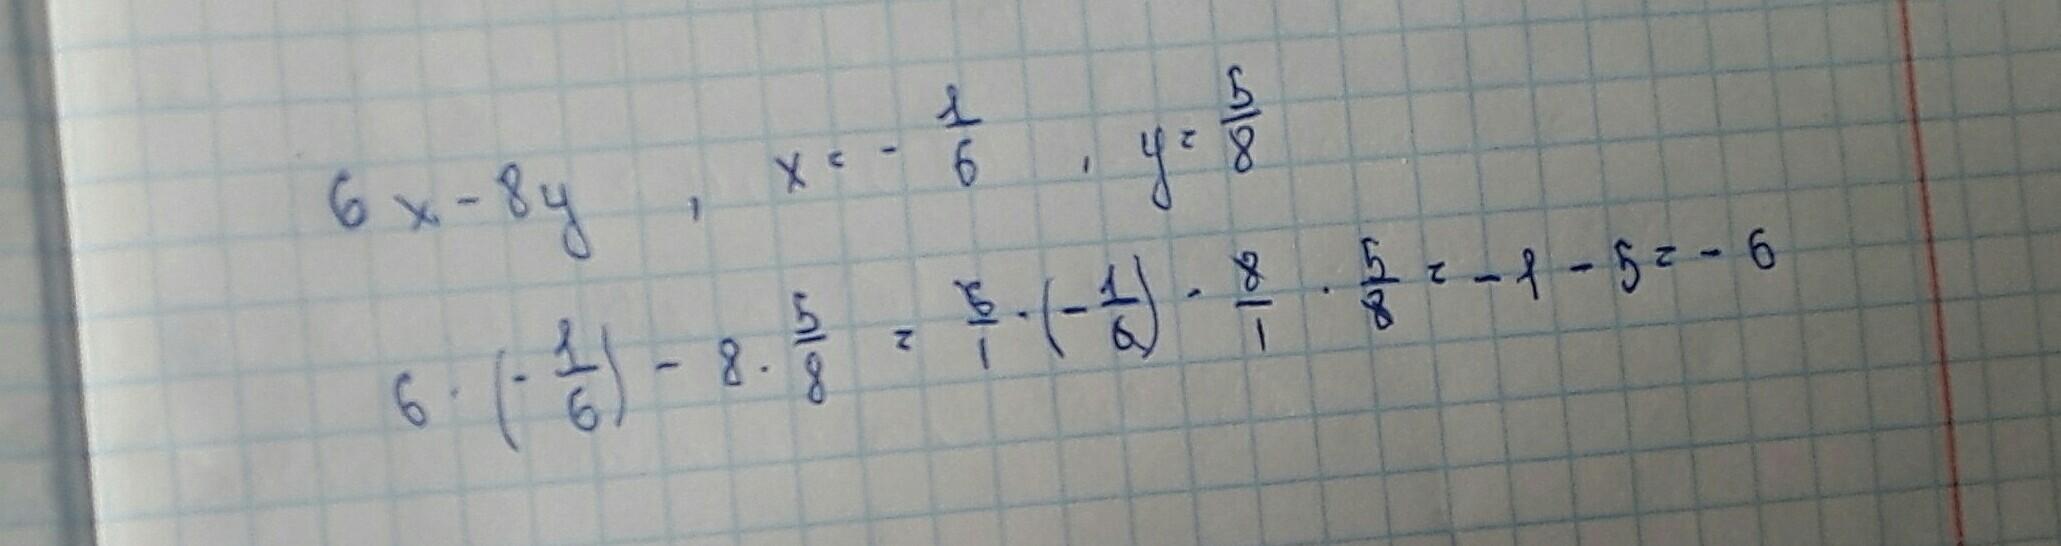 6x - 8y , x = - 1/6 , y = 5/8
6 · (- 1/6) - 8 · 5/8 = 6/1 · (- 1/6) - 8/1 · 5/8 = - 1 - 5 = - 6